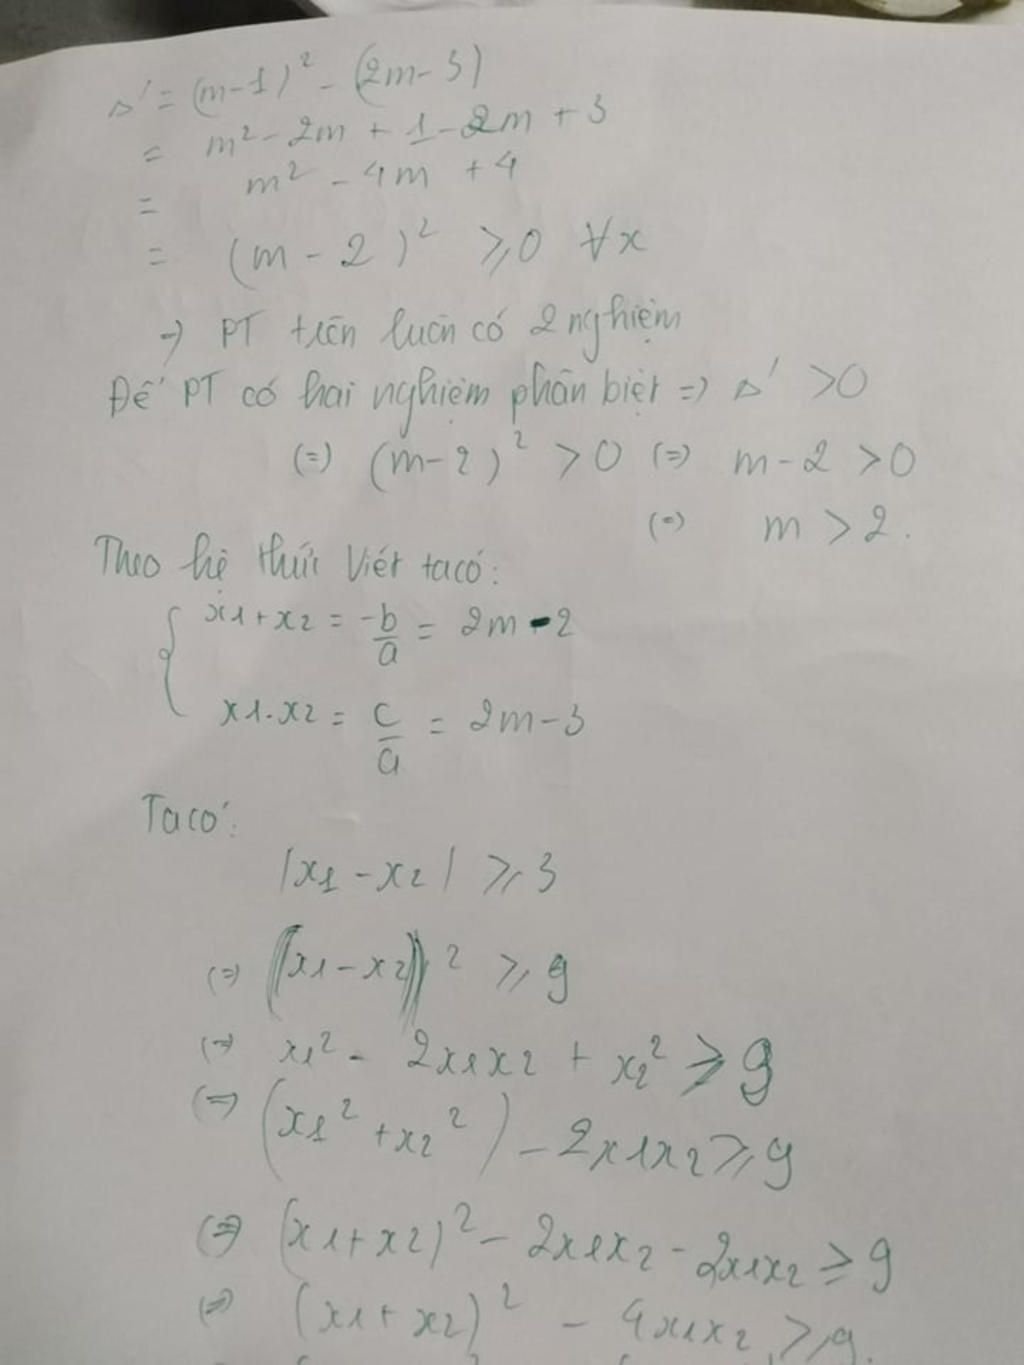 Δ' = (m-1)² - (2m-3)
= m² - 2m + 1 - 2m + 3
= m² - 4m + 4
= (m - 2)² ≥ 0 ∀x
=> PT trên luôn có 2 nghiệm
Để PT có hai nghiệm phân biệt => Δ' > 0
(=) (m-2)² > 0 (=) m - 2 > 0
(=) m > 2.
Theo hệ thức Viét ta có:
{ x1 + x2 = -b/a = 2m - 2
x1.x2 = c/a = 2m - 3
Ta có:
|x1 - x2| ≥ 3
(=) (|x1 - x2|)² ≥ 9
(=) x1² - 2x1x2 + x2² ≥ 9
(=) (x1² + x2²) - 2x1x2 ≥ 9
(=) (x1 + x2)² - 2x1x2 - 2x1x2 ≥ 9
(=) (x1 + x2)² - 4x1x2 ≥ 9.